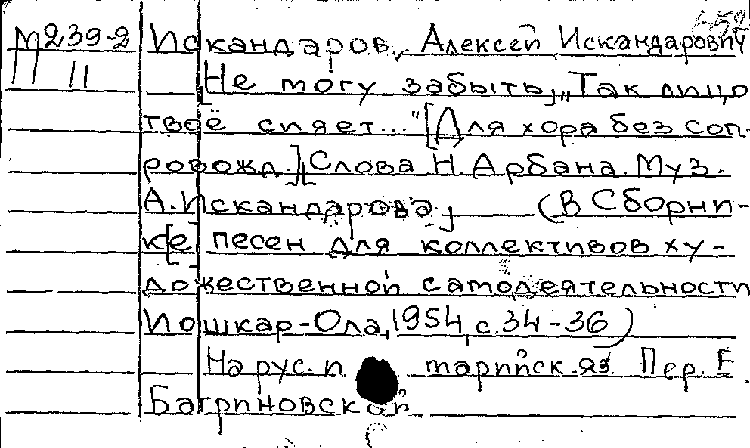 М239-2 Искандаров, Алексей Искандарович
П 11 [Не могу забыть, „Так лицо
твоё сияет..." [Для хора без соп-
ровожд.] Слова Н. Арбана. Муз.
А. Искандарова] (В Сборни-
к[е] песен для коллективов ху-
дожественной самодеятельности
Йошкар-Ола, 1954, с. 34-36)
На рус. и марийск. яз. Пер. Е.
Багриновской